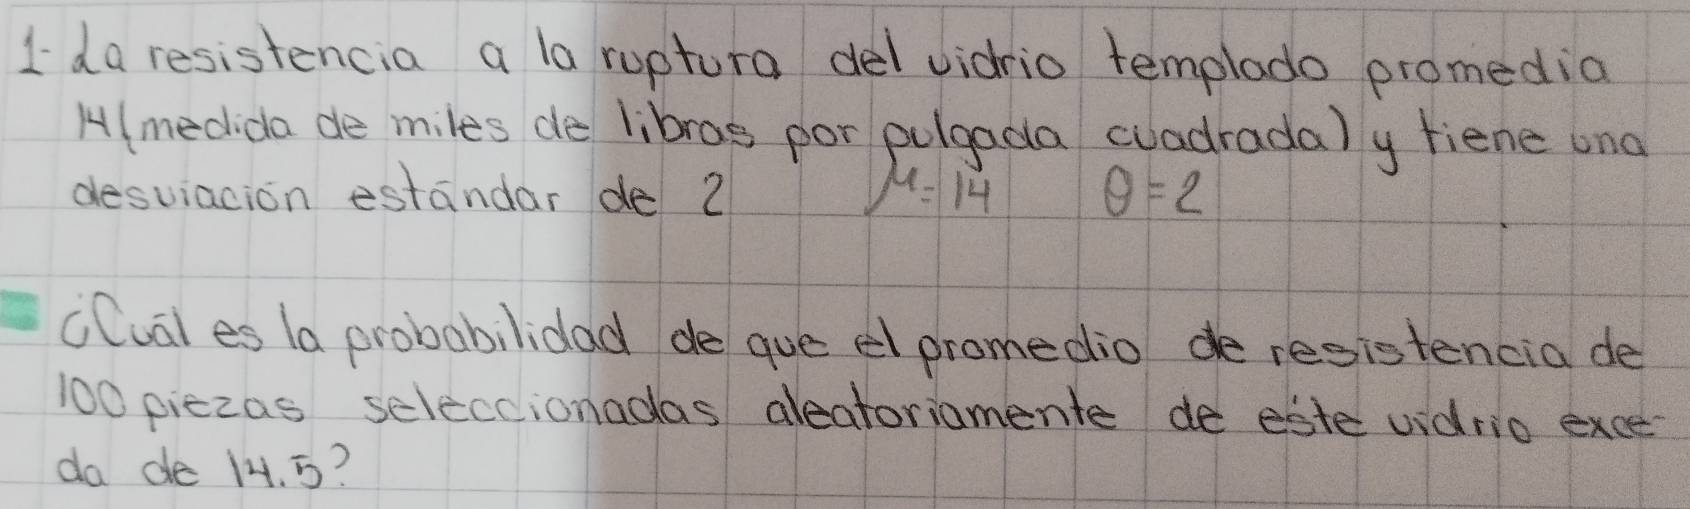 1- La resistencia a la ruptura del vidrio templado promedia
14 (medida de miles de libras por pulgada cuadrada) y tiene una
desviación estándar de 2 μ=14 θ=2
¿Cuál es la probabilidad de que el promedio de resistencia de
100 piezas seleccionadas aleatoriamente de este vidrio exce-
da de 14.5?